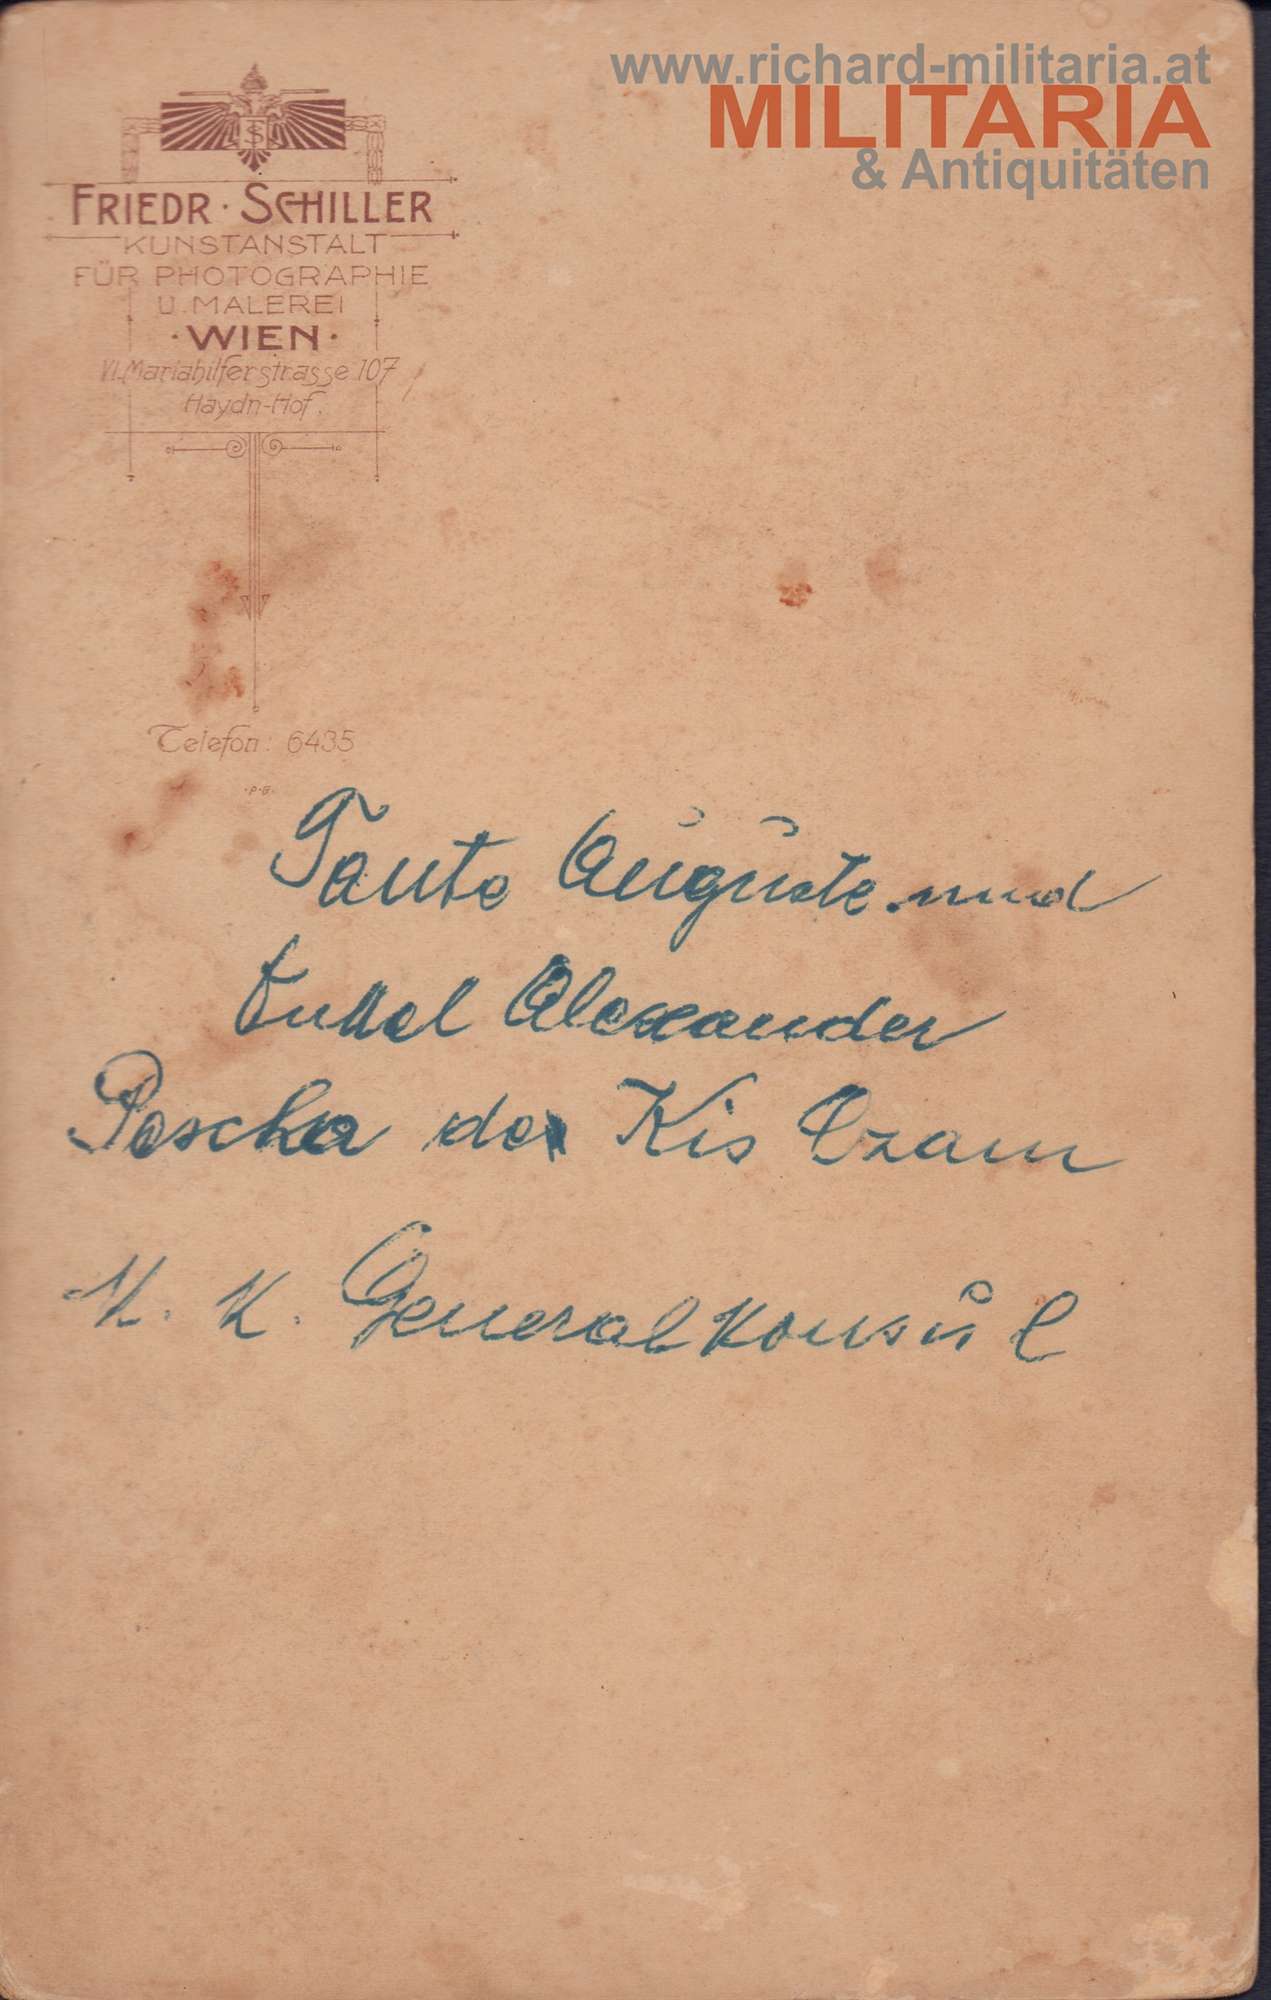 www.richard-militaria.at
MILITARIA
& Antiquitäten
FRIEDR · SCHILLER
KUNSTANSTALT
FÜR PHOTOGRAPHIE
U. MALEREI
· WIEN ·
VI. Mariahilferstrasse 107
Haydn-Hof.
Telefon: 6435
Tante Auguste und
Onkel Alexander
Pascha de Kis
K. K. Generalkonsul